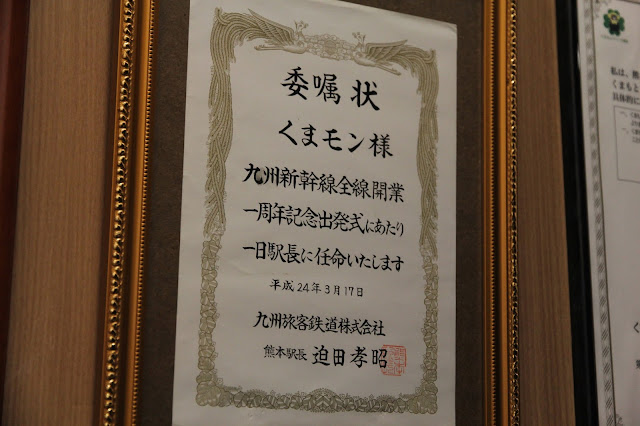 委嘱状
くまモン様
九州新幹線全線開業
一周年記念出発式にあたり
一日駅長に任命いたします
平成24年3月17日
九州旅客鉄道株式会社
熊本駅長 迫田孝昭
私は、
くまもと
具体的に